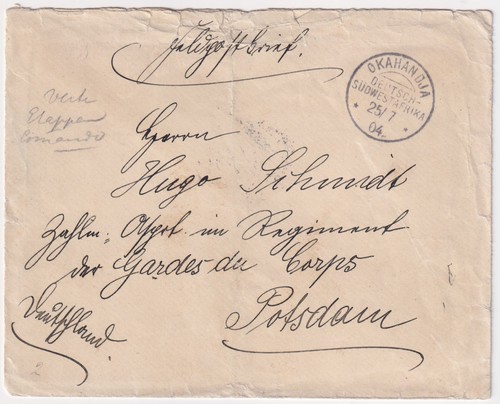 Feldpostbrief.
OKAHANDJA
DEUTSCH-
SÜDWESTAFRIKA
25/7
04.
Etappen
Comando
Herrn
Hugo Schmidt
Zahlm. Aspt. im Regiment
der Gardes du Corps
Potsdam
Deutschland.
2